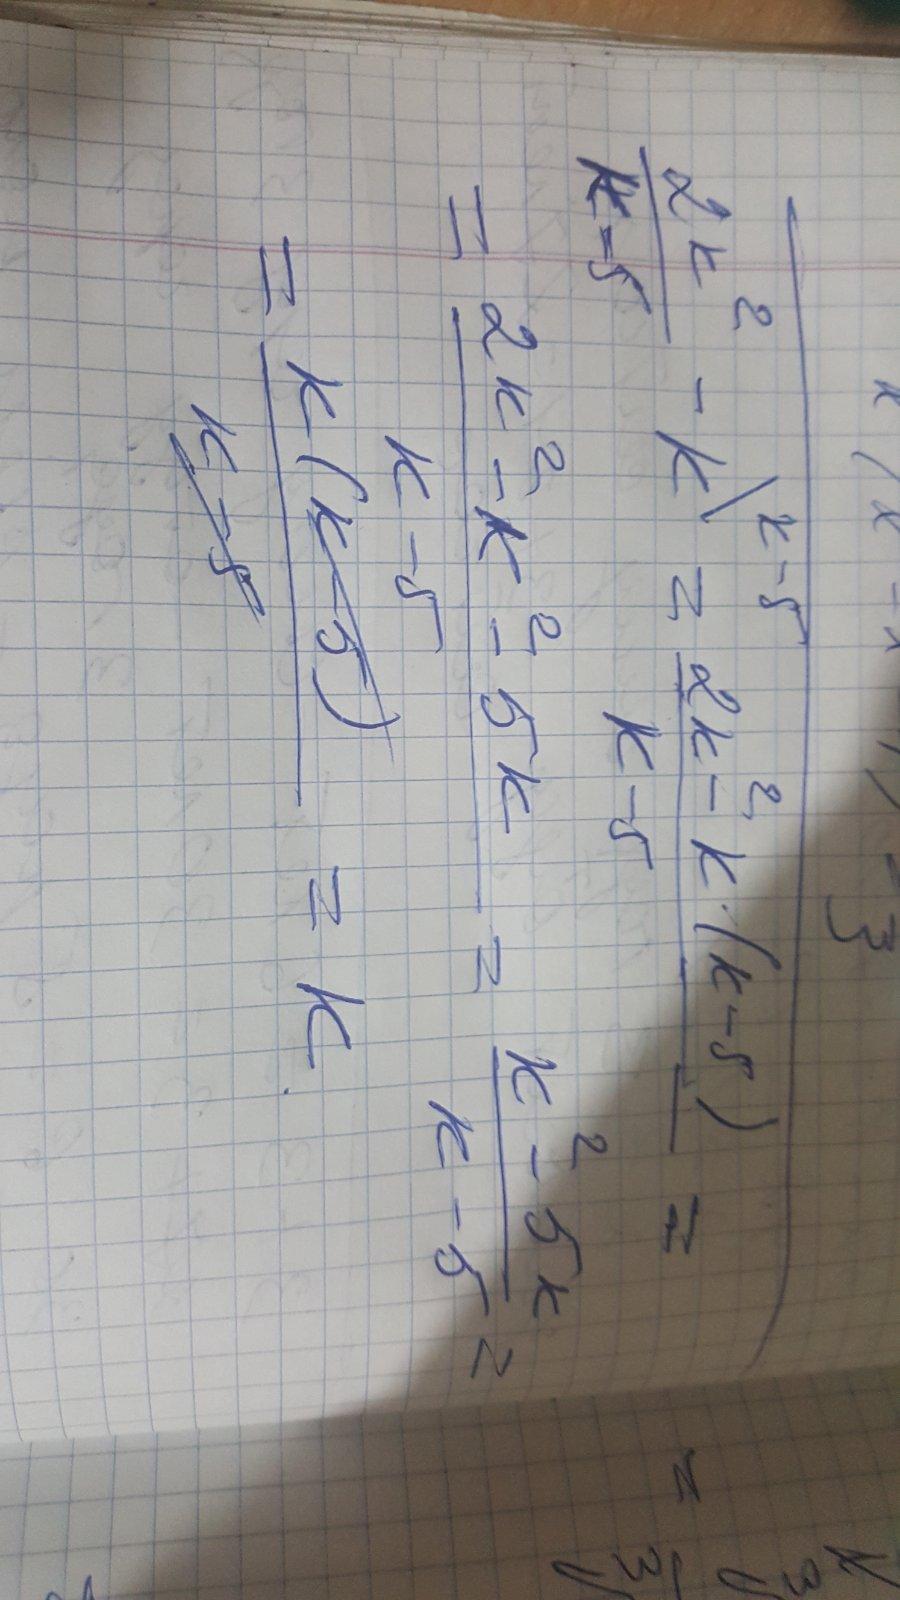 2k² / k-5 - k \ k-5 = 2k² - k·(k-5) / k-5 =
= 2k² - k² - 5k / k-5 = k² - 5k / k-5 =
= k(k-5) / k-5 = k.